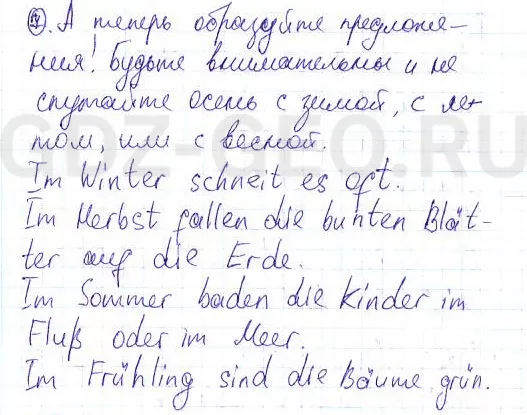 ④. А теперь образуйте предложе-
ния! Будьте внимательны и не
спутайте осень с зимой, с ле-
том, или с весной.
GDZ-GEO.RU
Im Winter schneit es oft.
Im Herbst fallen die bunten Blät-
ter auf die Erde.
Im Sommer baden die Kinder im
Fluß oder im Meer.
Im Frühling sind die Bäume grün.